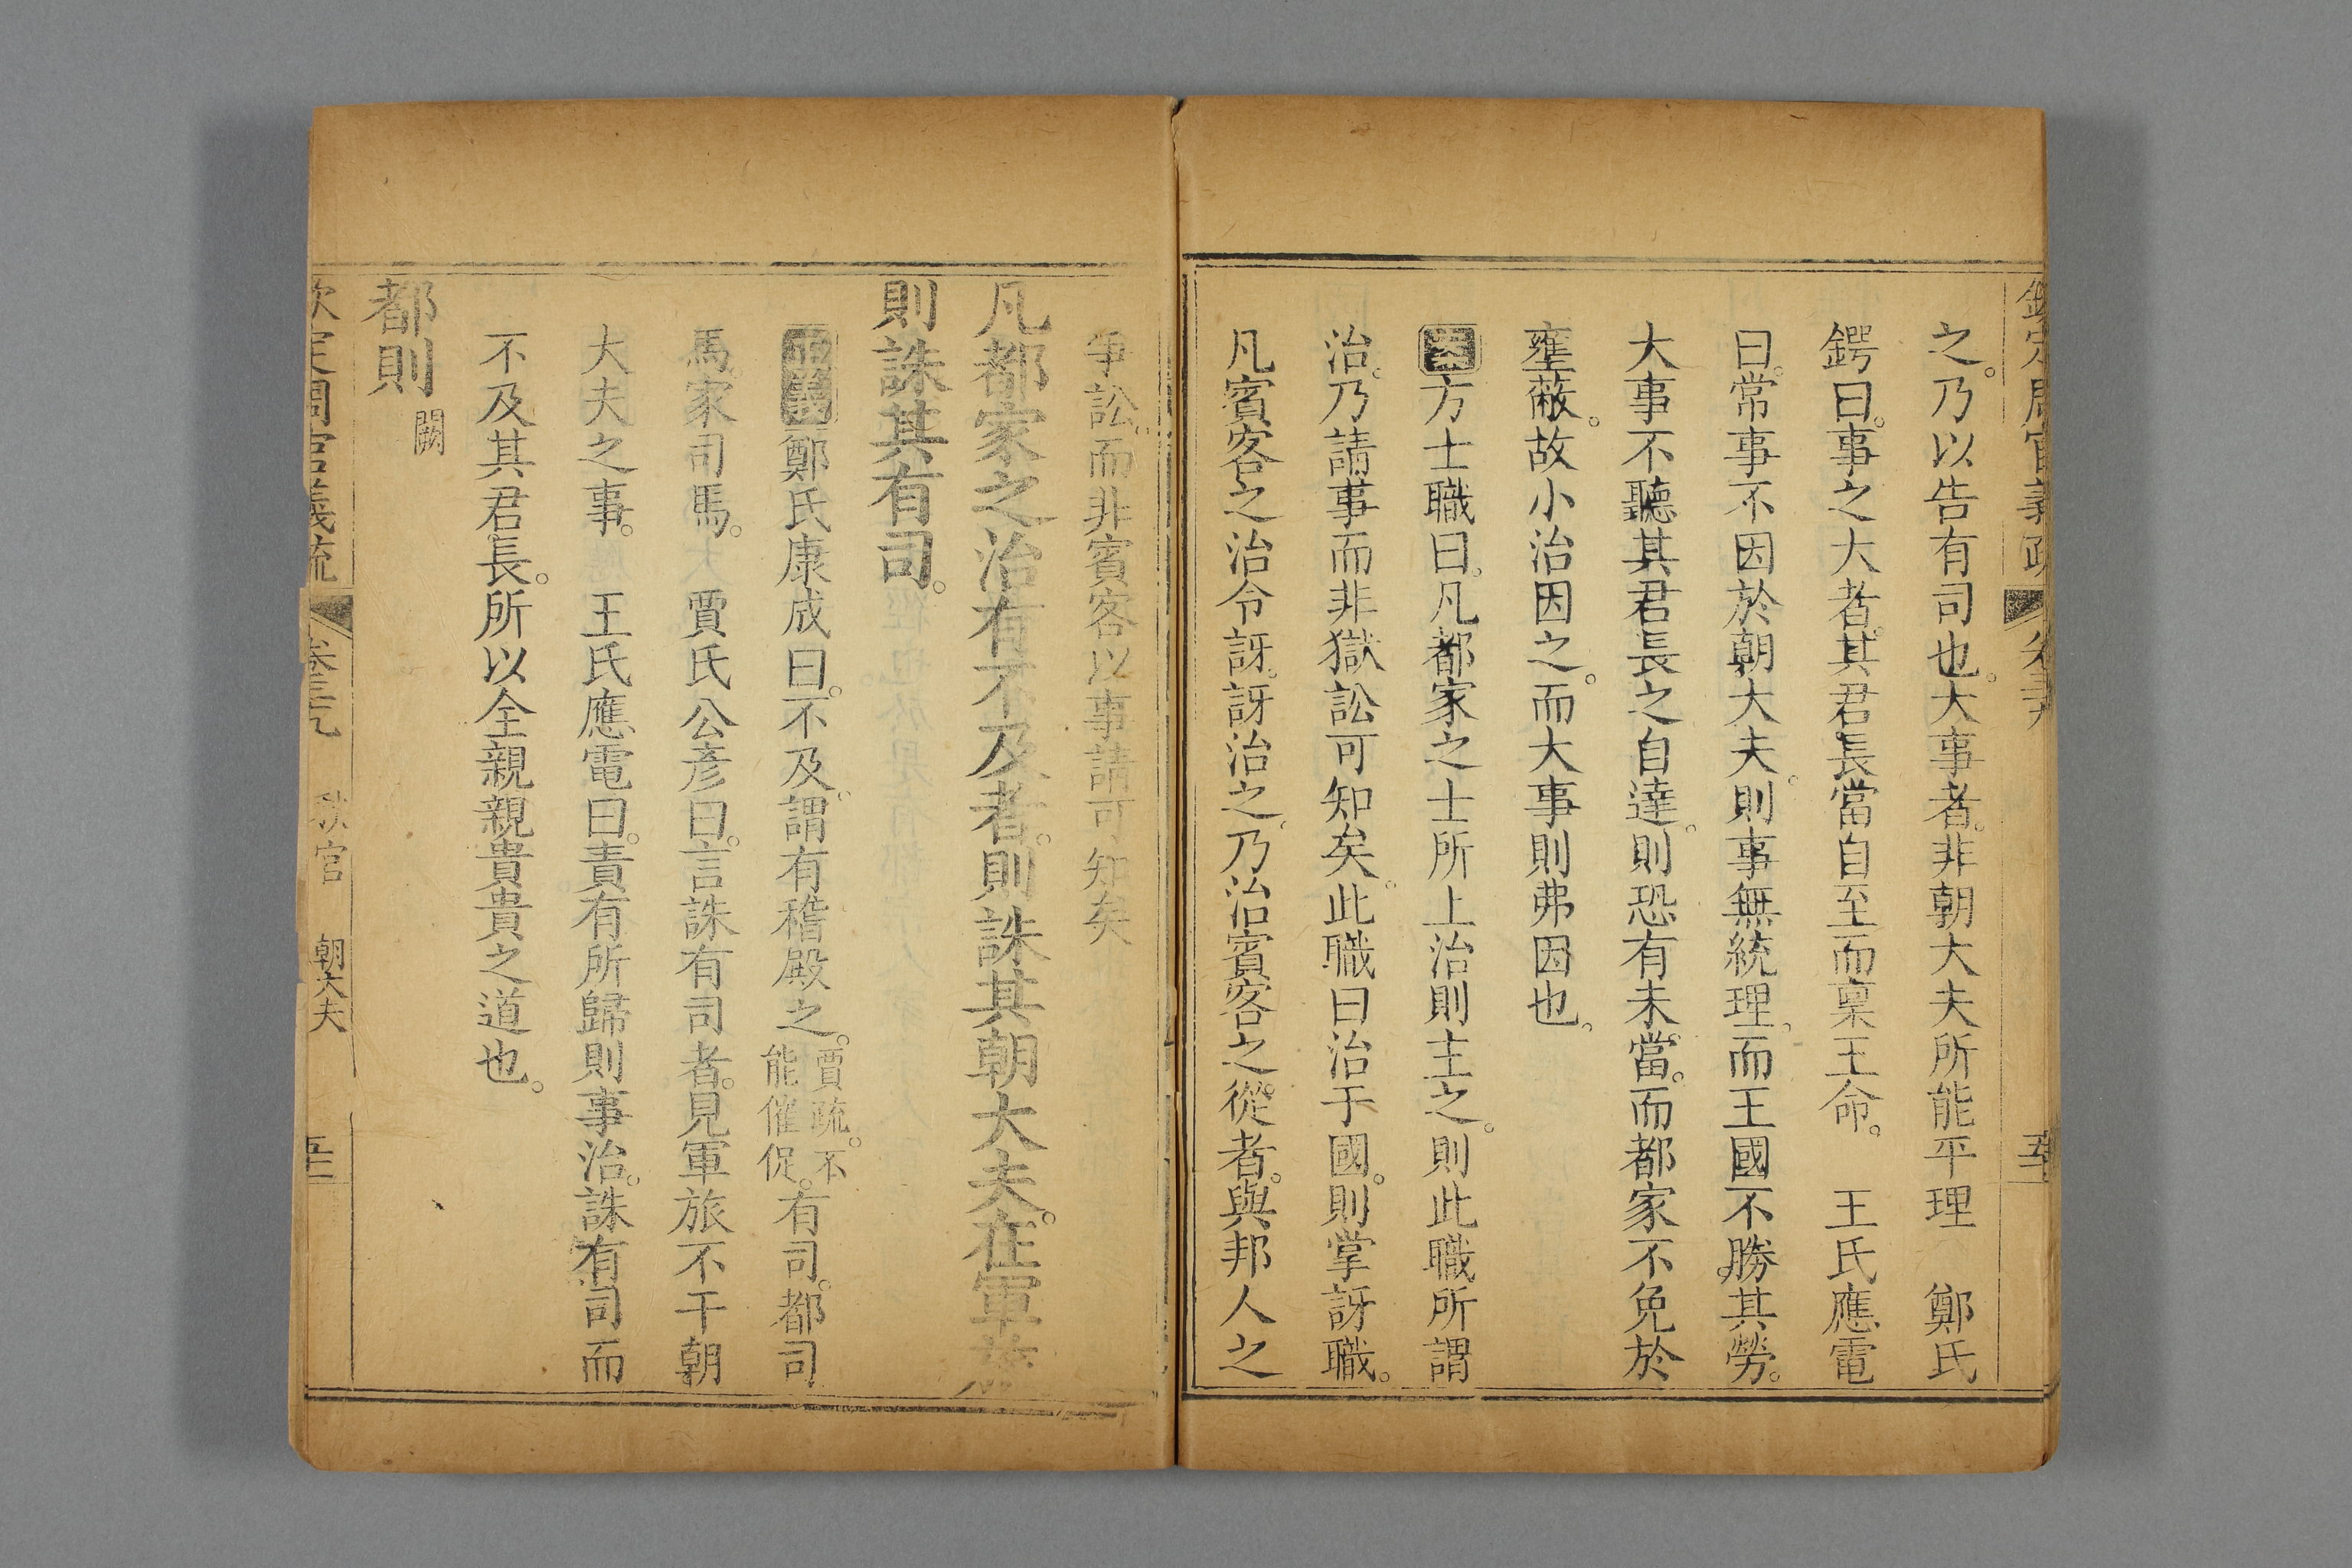 之。乃以告有司也。大事者。非朝大夫所能平理　鄭氏
鍔曰。事之大者。其君長當自至而稟王命。　王氏應電
曰。常事不因於朝大夫。則事無統理。而王國不勝其勞。
大事不聽其君長之自達。則恐有未當。而都家不免於
壅蔽。故小治因之。而大事則弗因也。
方士職曰。凡都家之士所上治則主之。則此職所謂
治。乃請事而非獄訟可知矣。此職曰治于國。則掌訝職。
凡賓客之治令訝。訝治之。乃治賓客之從者。與邦人之
爭訟。而非賓客以事請可知矣
凡都家之治有不及者。則誅其朝大夫。在軍旅
則誅其有司。
鄭氏康成曰。不及。謂有稽殿之。賈疏。不能催促。有司。都司
馬。家司馬。　賈氏公彥曰。言誅有司者。見軍旅不干朝
大夫之事。　王氏應電曰。責有所歸則事治。誅有司而
不及其君長。所以全親親貴貴之道也。
都則闕
欽定周官義疏　卷三十九　秋官　朝大夫　五十三